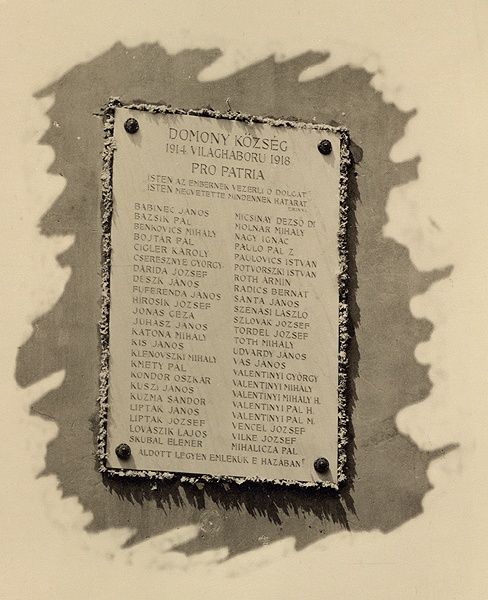 DOMONY KÖZSÉG
1914 VILAGHABORU 1918
PRO PATRIA
ISTEN AZ EMBERNEK VEZERLI Ő DOLGAT
ISTEN MEGVETETTE MINDENNEK HATARAT
BABINEC JANOS
BAZSIK PAL
BENKOVICS MIHALY
BOJTAR PAL
CIGLER KAROLY
CSERESZNYE GYÖRGY
DARIDA JOZSEF
DESZK JANOS
FUFERENDA JANOS
HIROSIK JOZSEF
JONAS GEZA
JUHASZ JANOS
KATONA MIHALY
KIS JANOS
KLENOVSZKI MIHALY
KMETY PAL
KONDOR OSZKAR
KUSZI JANOS
KUZMA SANDOR
LIPTAK JANOS
LIPTAK JOZSEF
LOVASZIK LAJOS
SKUBAL ELEMER
MICSINAY DEZSŐ DR
MOLNAR MIHALY
NAGY IGNAC
PAULO PAL Z
PAULOVICS ISTVAN
POTVORSZKI ISTVAN
ROTH ARMIN
RADICS BERNAT
SANTA JANOS
SZENASI LASZLO
SZLOVAK JOZSEF
TORDEL JOZSEF
TOTH MIHALY
UDVARDY JANOS
VAS JANOS
VALENTINYI GYÖRGY
VALENTINYI MIHALY
VALENTINYI MIHALY H.
VALENTINYI PAL H.
VALENTINYI PAL M.
VENCEL JOZSEF
VILKE JOZSEF
MIHALICZA PAL
ALDOTT LEGYEN EMLEKÜK E HAZABAN